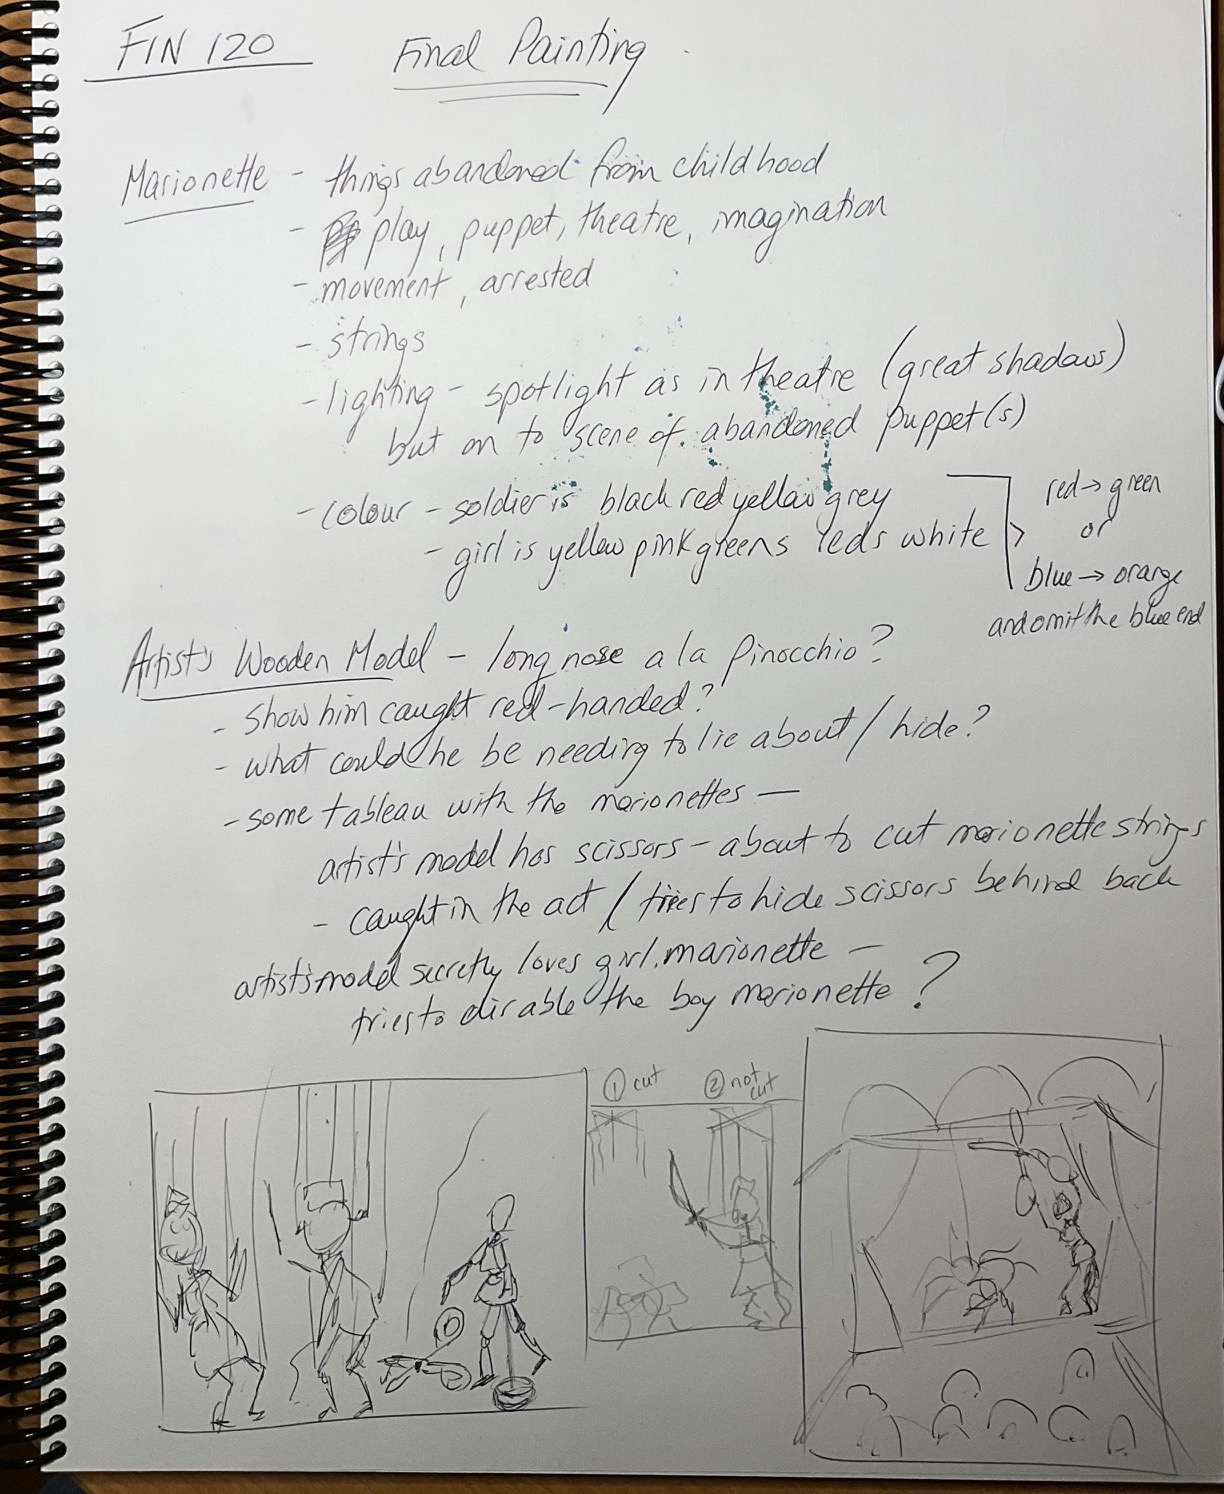 FIN 120 Final Painting
Marionette - things abandoned from childhood
- play, puppet, theatre, imagination
- movement, arrested
- strings
- lighting - spotlight as in theatre (great shadows)
but on to scene of abandoned puppet(s)
- colour - soldier is black red yellow grey
- girl is yellow pink greens reds white
red → green
or
blue → orange
and omit the blue end
Artist's Wooden Model - long nose a la Pinocchio?
- show him caught red-handed?
- what could he be needing to lie about / hide?
- some tableau with the marionettes —
artist's model has scissors - about to cut marionette strings
- caught in the act / tries to hide scissors behind back
artist's model secretly loves girl marionette —
tries to disable the boy marionette?
① cut ② not cut